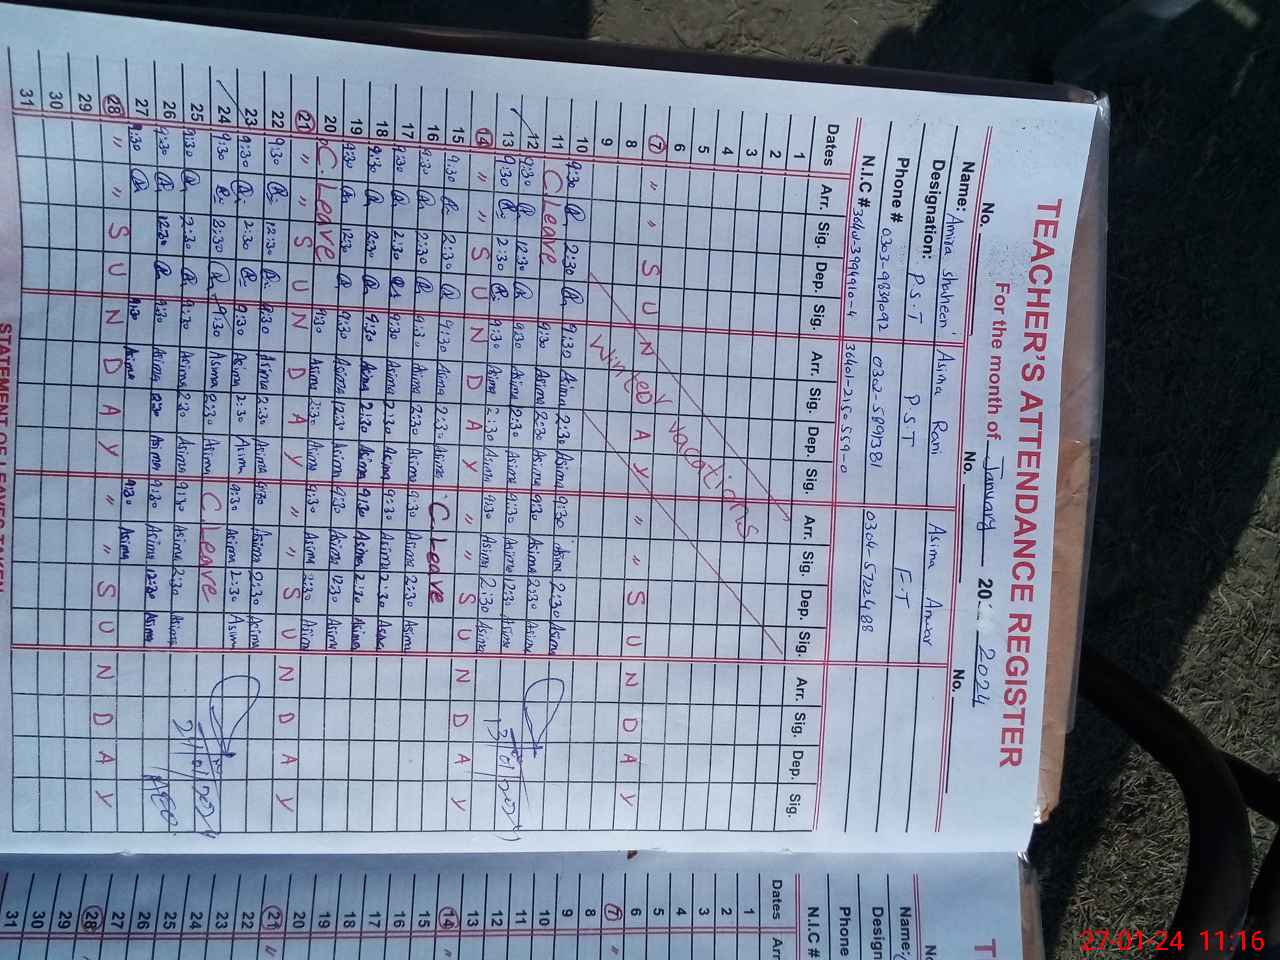 TEACHER'S ATTENDANCE REGISTER
For the month of January 20 2024
No. No. No.
Name: Amira Shaheen Asima Rani Asima Anwar
Designation: P.S.T P.S.T F.T
Phone # 0303-9839092 0302-5891381 0304-5722488
N.I.C #
Dates Arr. Sig. Dep. Sig. Arr. Sig. Dep. Sig. Arr. Sig. Dep. Sig. Arr. Sig. Dep. Sig.
1
2
3
4
5
6
7 " " S U N D A Y " " S U N D A Y
8
9
Winter vacations
10 9:30 2:30 9:30 Asima 2:30 Asima 9:30 Asima 2:30 Asima
11 C.Leave 9:30 Asima 2:30 Asima 9:30 Asima 2:30 Asima
12 9:30 12:30 9:30 Asima 2:30 Asima 9:30 Asima 12:30 Asima
13 9:30 2:30 9:30 Asima 2:30 Asima 9:30 Asima 2:30 Asima
13/01/2024
14 " " S U N D A Y " " S U N D A Y
15 9:30 2:30 9:30 Asima 2:30 Asima C.Leave
16 9:30 2:30 9:30 Asima 2:30 Asima 9:30 Asima 2:30 Asima
17 9:30 2:30 9:30 Asima 2:30 Asima 9:30 Asima 2:30 Asima
18 9:30 2:30 9:30 Asima 2:30 Asima 9:30 Asima 2:30 Asima
19 9:30 12:30 9:30 Asima 12:30 Asima 9:30 Asima 12:30 Asima
20 C.Leave 9:30 Asima 2:30 Asima 9:30 Asima 2:30 Asima
21 " " S U N D A Y " " S U N D A Y
22 9:30 12:30 9:30 Asima 2:30 Asima 9:30 Asima 2:30 Asima
23 9:30 2:30 9:30 Asima 2:30 Asima 9:30 Asima 2:30 Asima
24 9:30 2:30 9:30 Asima 2:30 Asima C.Leave
25 9:30 2:30 9:30 Asima 2:30 Asima 9:30 Asima 2:30 Asima
26 9:30 12:30 9:30 Asima Asima 9:30 Asima 12:30 Asima
27 9:30 9:30 Asima 9:30 Asima
28 " " S U N D A Y " " S U N D A Y
29
30
31
STATEMENT OF LEAVES TAKEN
T
N
Name:
Design
Phone
N.I.C #
Dates Arr
1
2
3
4
5
6
7 "
8
9
10
11
12
13
14 "
15
16
17
18
19
20
21 "
22
23
24
25
26
27
28
29
30
31
27-01-24 11:16